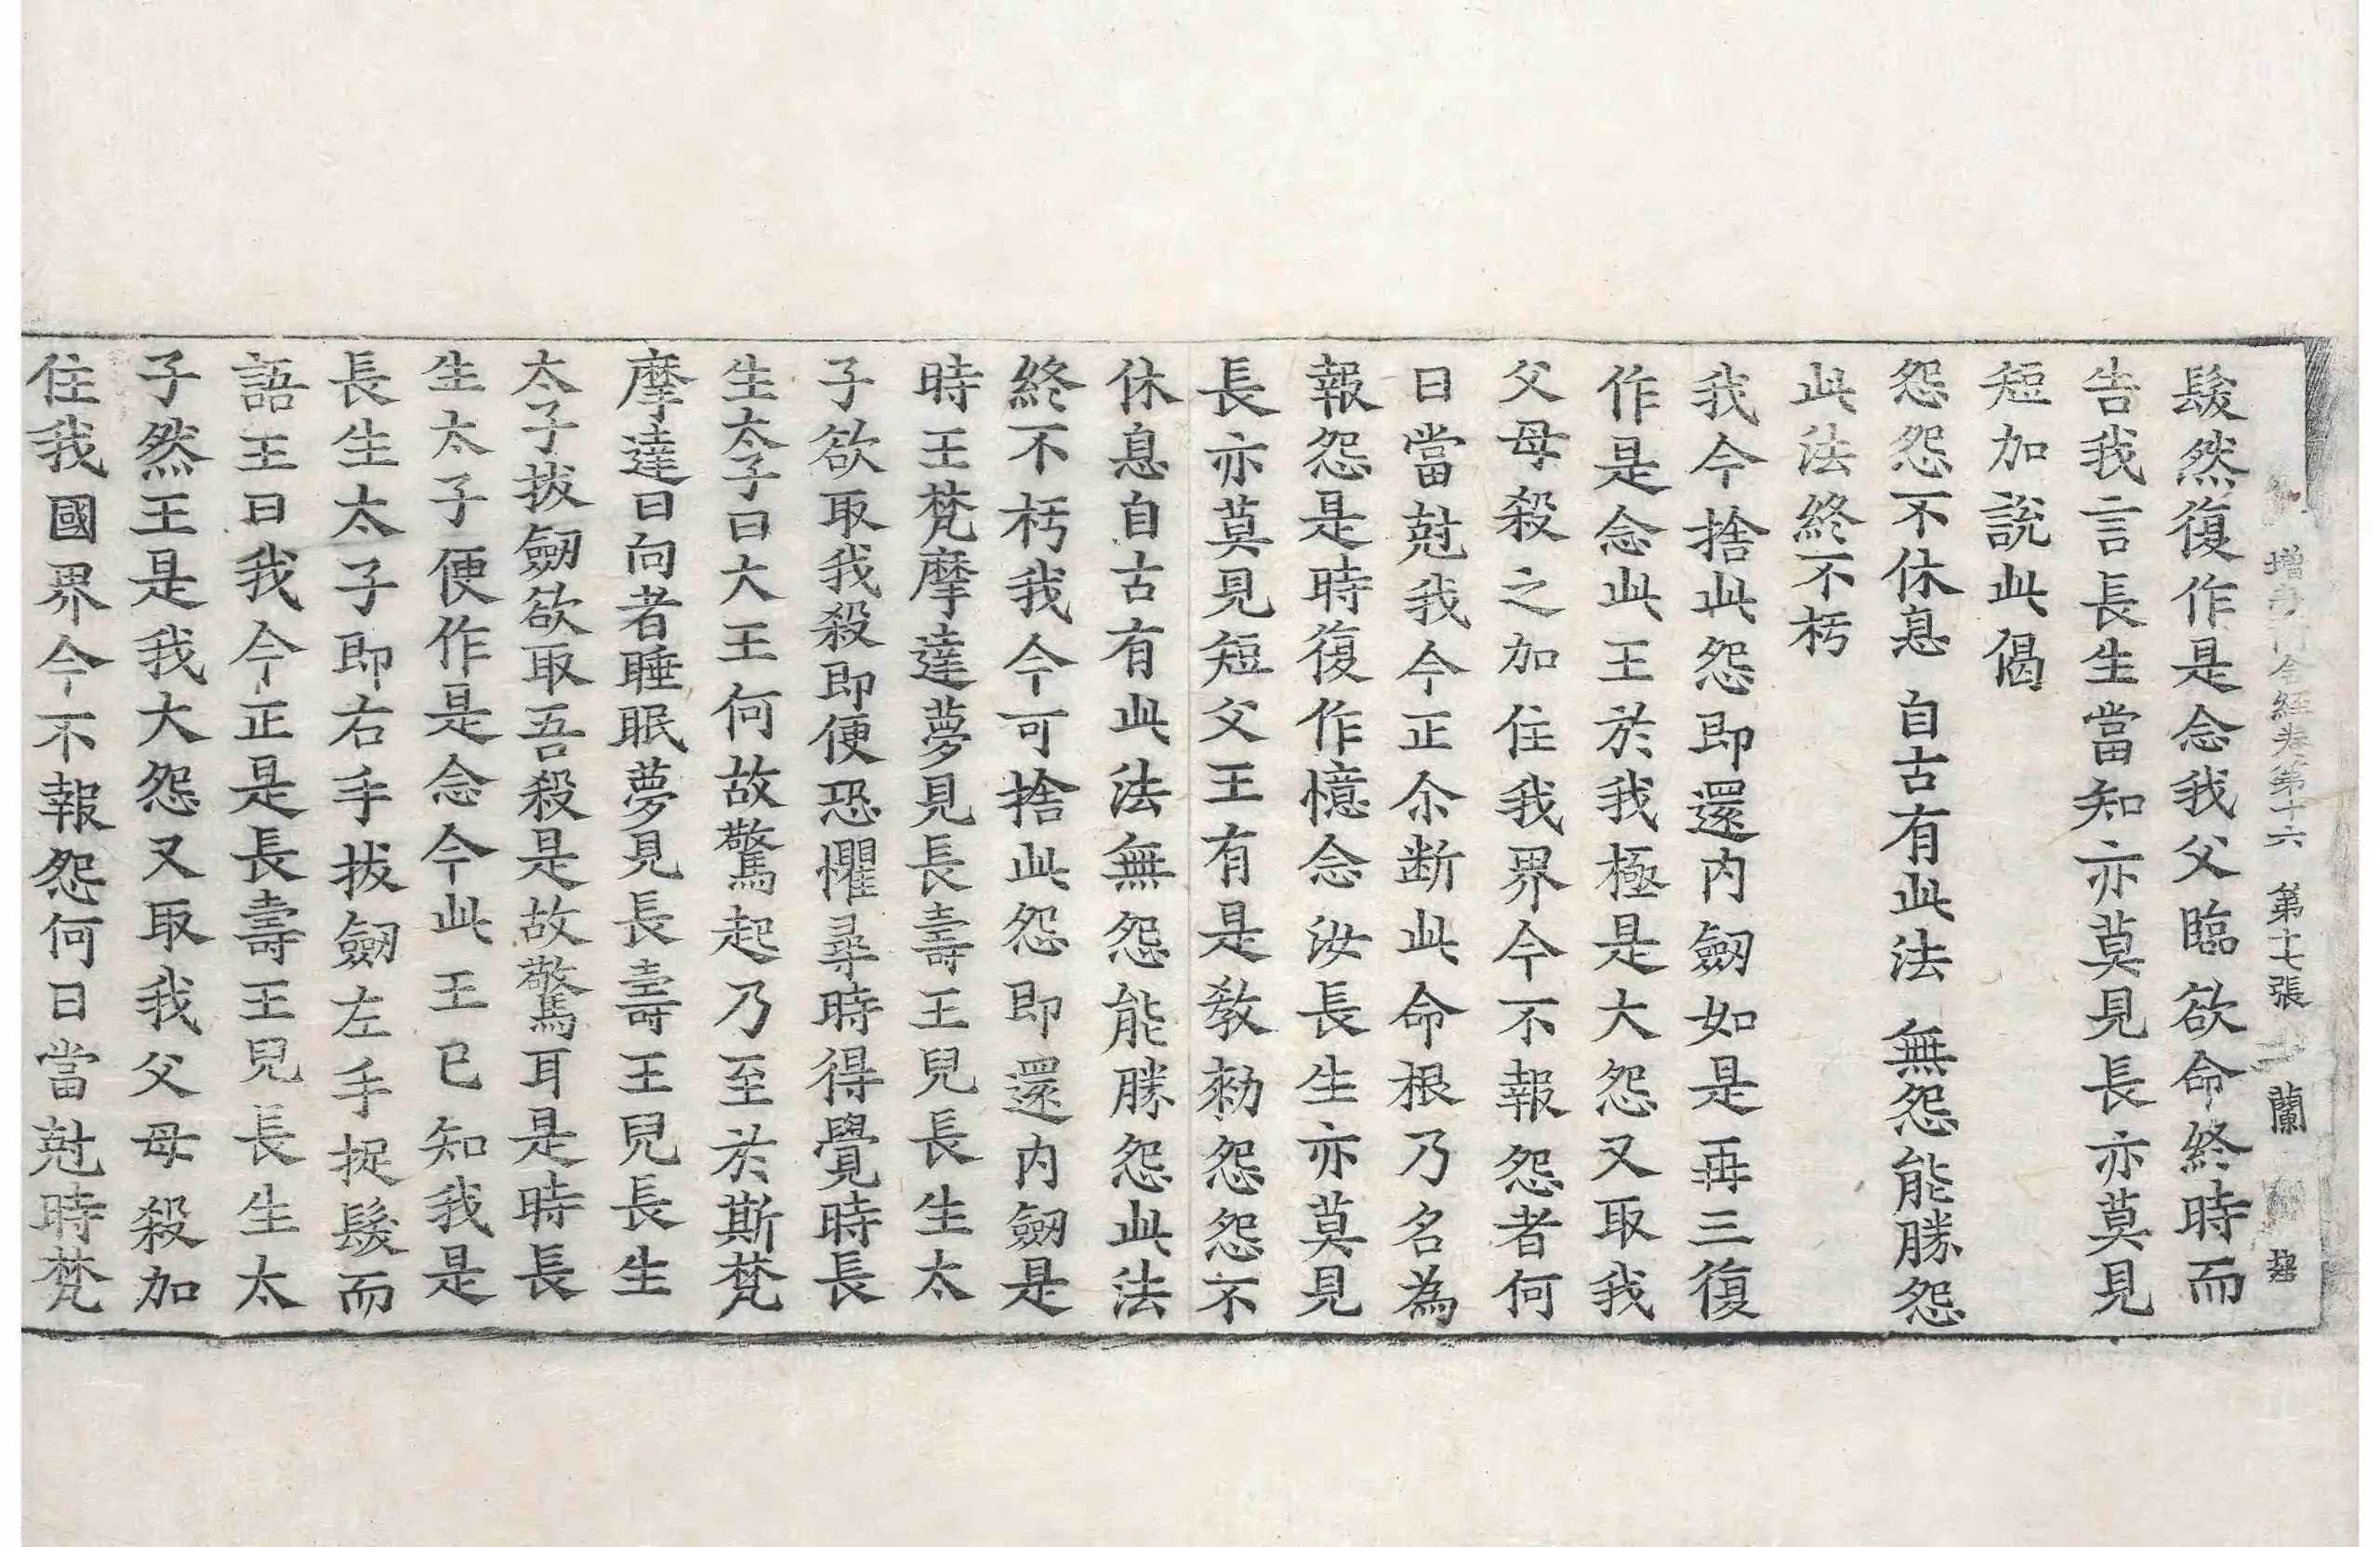 增 含經卷第十六 第十七張 蘭
髮然復作是念我父臨欲命終時而
告我言長生當知亦莫見長亦莫見
短加說此偈
怨怨不休息 自古有此法 無怨能勝怨
此法終不朽
我今捨此怨即還内劒如是再三復
作是念此王於我極是大怨又取我
父母殺之加住我界今不報怨者何
日當剋我今正尒断此命根乃名為
報怨是時復作憶念汝長生亦莫見
長亦莫見短父王有是教勑怨怨不
休息自古有此法無怨能勝怨此法
終不朽我今可捨此怨即還内劒是
時王梵摩達夢見長壽王兒長生太
子欲取我殺即便恐懼尋時得覺時長
生太子曰大王何故驚起乃至於斯梵
摩達曰向者睡眠夢見長壽王兒長生
太子拔劒欲取吾殺是故驚耳是時長
生太子便作是念今此王已知我是
長生太子即右手拔劒左手捉髮而
語王曰我今正是長壽王兒長生太
子然王是我大怨又取我父母殺加
住我國界今不報怨何日當剋時梵